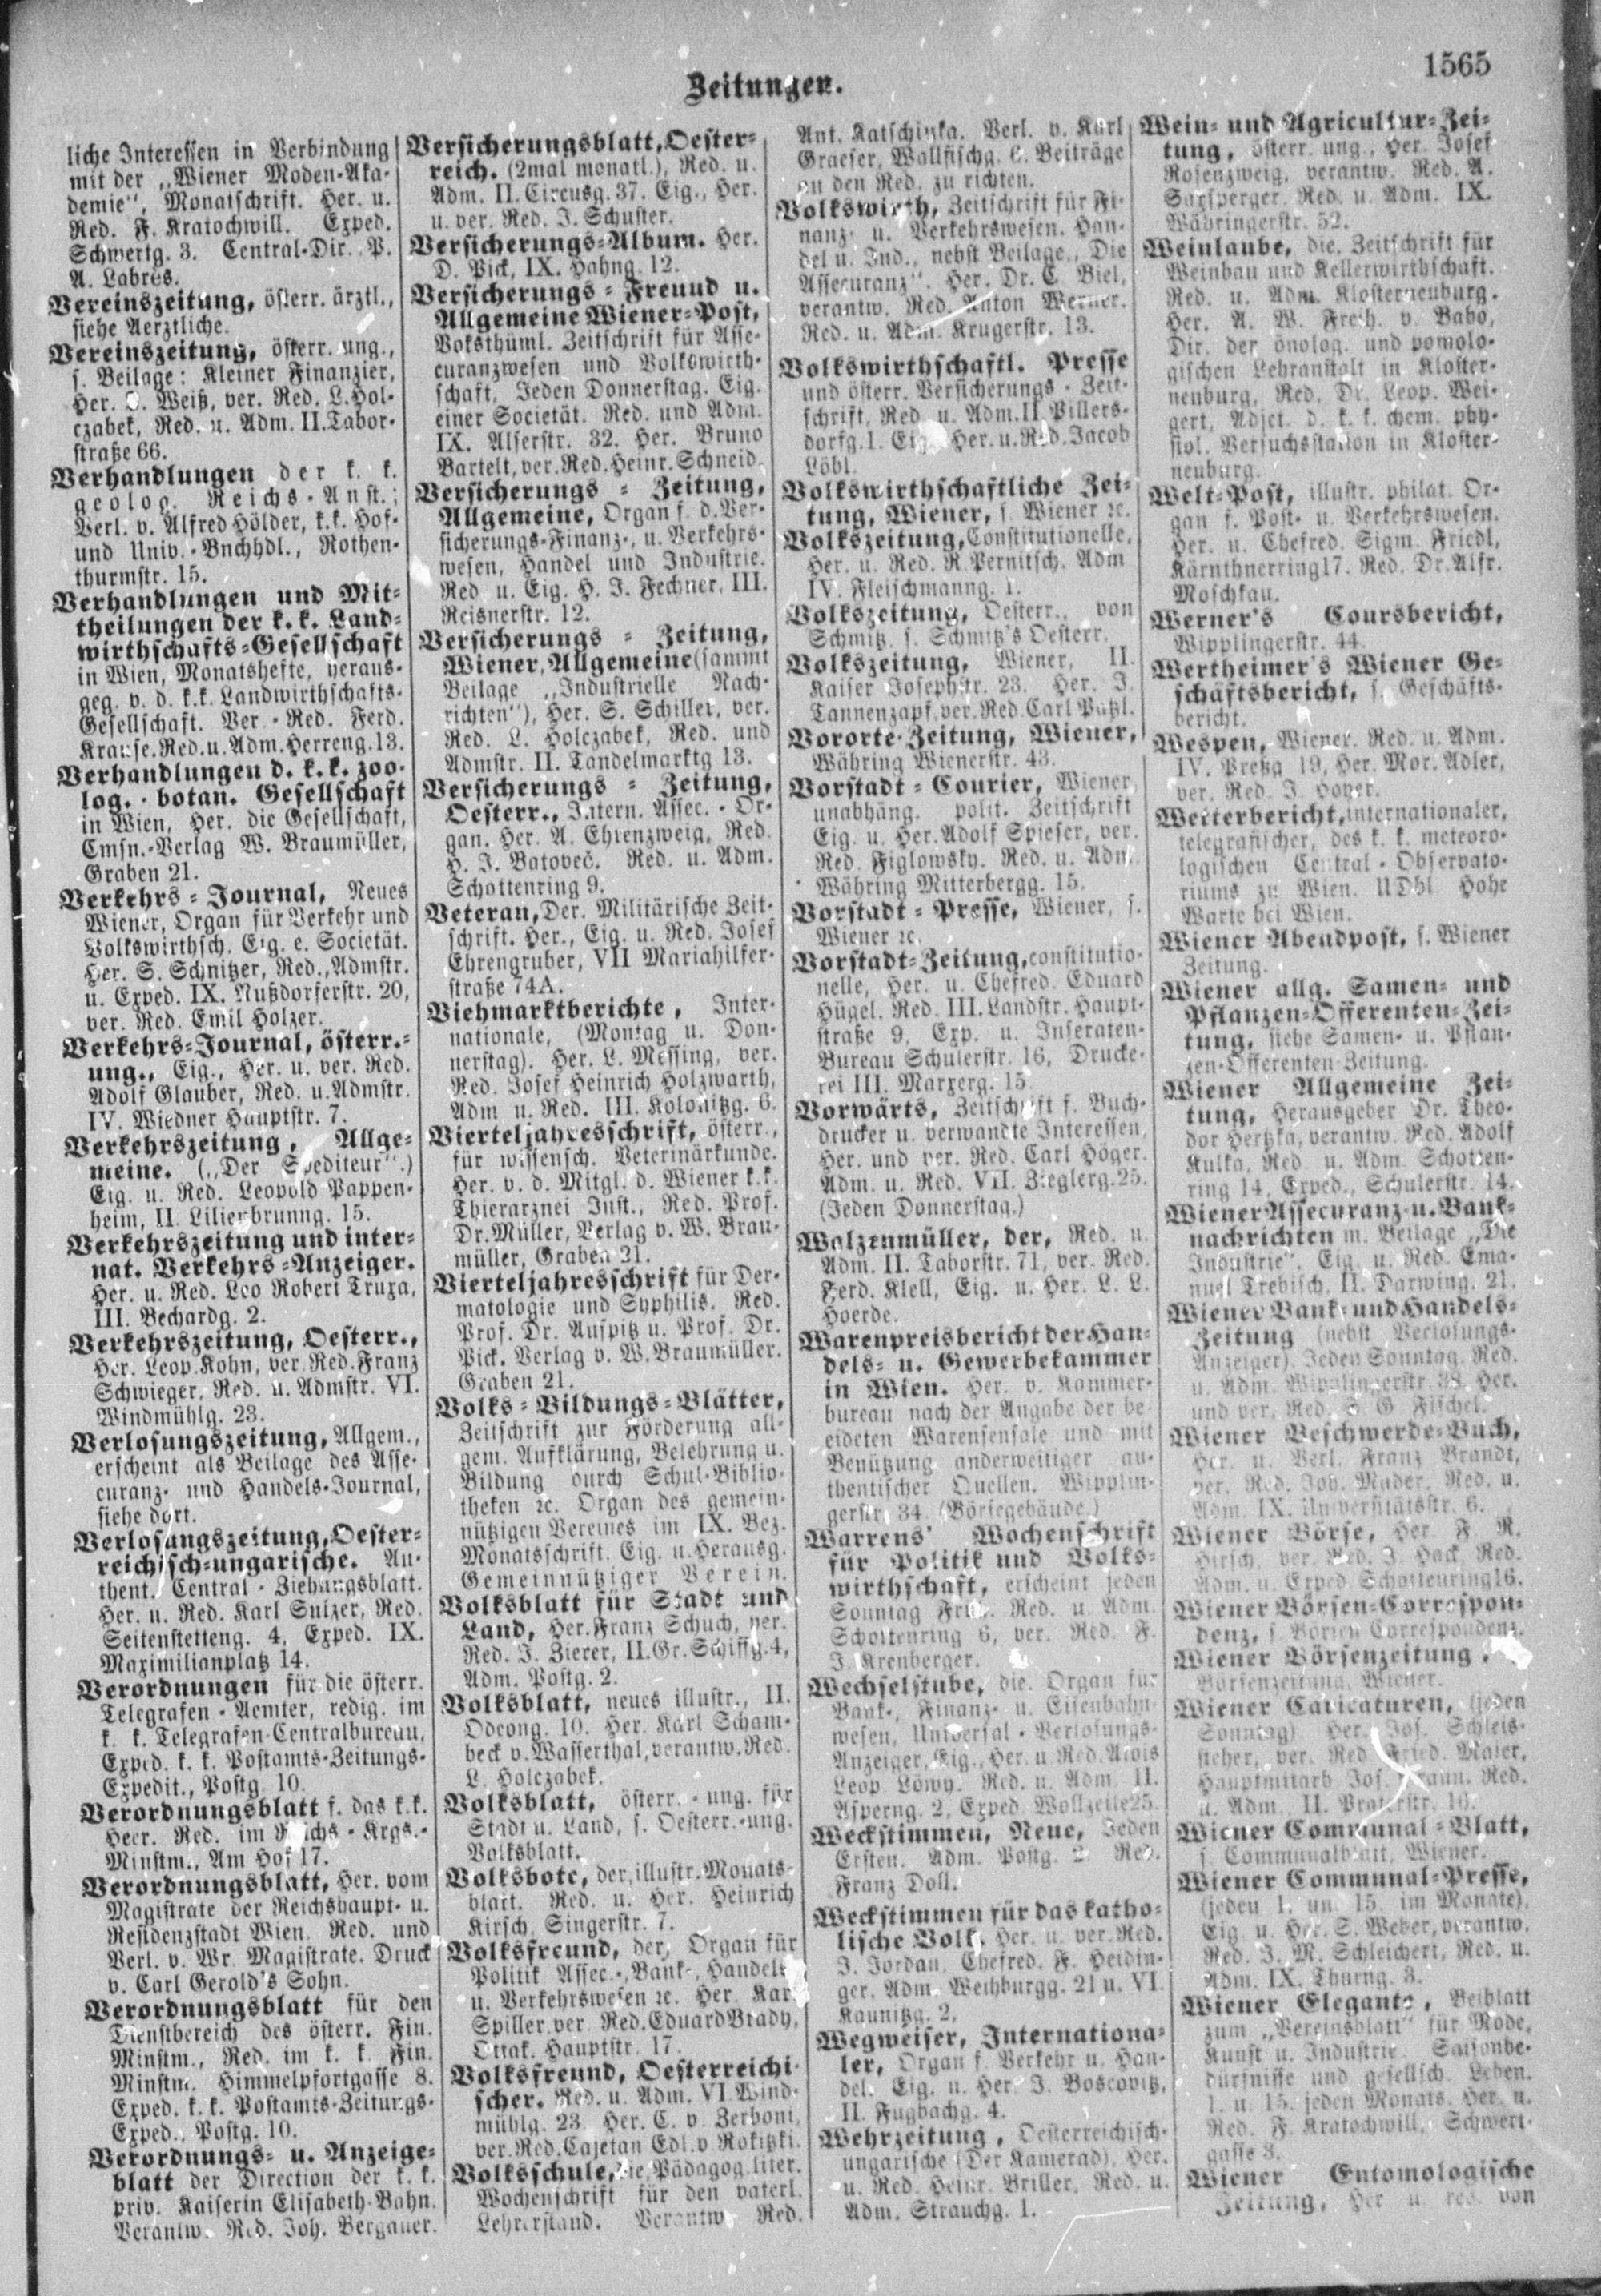 1565
Zeitungen.
liche Interessen in Verbindung
mit der „Wiener Moden-Aka-
demie", Monatschrift. Her. u.
Red. F. Kratochwill. Exped.
Schwertg. 3. Central-Dir. P.
A. Labres.
Vereinszeitung, österr. ärztl.,
siehe Aerztliche.
Vereinszeitung, österr. ung.,
s. Beilage: Kleiner Finanzier,
Her. Weiß, ver. Red. L. Hol-
czabek, Red. u. Adm. II. Tabor-
straße 66.
Verhandlungen der k. k.
geolog. Reichs-Anst.;
Verl. v. Alfred Hölder, k.k. Hof-
und Univ.-Bnchhdl., Rothen-
thurmstr. 15.
Verhandlungen und Mit-
theilungen der k. k. Land-
wirthschafts-Gesellschaft
in Wien, Monatshefte, heraus-
geg. v. d. k.k. Landwirthschafts-
Gesellschaft. Ver.-Red. Ferd.
Krause. Red. u. Adm. Herreng. 13.
Verhandlungen d. k. k. zoo-
log.-botan. Gesellschaft
in Wien, Her. die Gesellschaft,
Cmsn.-Verlag W. Braumüller,
Graben 21.
Verkehrs-Journal, Neues
Wiener, Organ für Verkehr und
Volkswirthsch. Eig. e. Societät.
Her. S. Schnitzer, Red., Admstr.
u. Exped. IX. Nußdorferstr. 20,
ver. Red. Emil Holzer.
Verkehrs-Journal, österr.-
ung., Eig., Her. u. ver. Red.
Adolf Glauber, Red. u. Admstr.
IV. Wiedner Hauptstr. 7.
Verkehrszeitung, Allge-
meine. („Der Spediteur".)
Eig. u. Red. Leopold Pappen-
heim, II. Lilienbrunng. 15.
Verkehrszeitung und inter-
nat. Verkehrs-Anzeiger.
Her. u. Red. Leo Robert Truxa,
III. Bechardg. 2.
Verkehrszeitung, Oesterr.,
Her. Leop. Kohn, ver. Red. Franz
Schwieger, Red. u. Admstr. VI.
Windmühlg. 23.
Verlosungszeitung, Allgem.,
erscheint als Beilage des Asse-
curanz- und Handels-Journal,
siehe dort.
Verlosungszeitung, Oester-
reichisch-ungarische. Au-
thent. Central-Ziehungsblatt.
Her. u. Red. Karl Sulzer, Red.
Seitenstetteng. 4, Exped. IX.
Maximilianplatz 14.
Verordnungen für die österr.
Telegrafen-Aemter, redig. im
k. k. Telegrafen-Centralbureau,
Exped. k. k. Postamts-Zeitungs-
Expedit., Postg. 10.
Verordnungsblatt f. das k.k.
Heer. Red. im Reichs-Krgs.-
Minstm., Am Hof 17.
Verordnungsblatt, Her. vom
Magistrate der Reichshaupt- u.
Residenzstadt Wien. Red. und
Verl. v. Wr. Magistrate. Druck
v. Carl Gerold's Sohn.
Verordnungsblatt für den
Dienstbereich des österr. Fin.
Minstm., Red. im k. k. Fin.
Minstm. Himmelpfortgasse 8.
Exped. k. k. Postamts-Zeitungs-
Exped., Postg. 10.
Verordnungs- u. Anzeige-
blatt der Direction der k. k.
priv. Kaiserin Elisabeth-Bahn.
Verantw. Red. Joh. Bergauer.
Versicherungsblatt, Oester-
reich. (2mal monatl.), Red. u.
Adm. II. Circusg. 37. Eig., Her.
u. ver. Red. J. Schuster.
Versicherungs-Album. Her.
D. Pick, IX. Hahng. 12.
Versicherungs-Freund u.
Allgemeine Wiener-Post,
Voksthüml. Zeitschrift für Asse-
curanzwesen und Volkswirth-
schaft, Jeden Donnerstag. Eig.
einer Societät. Red. und Adm.
IX. Alserstr. 32. Her. Bruno
Bartelt, ver. Red. Heinr. Schneid.
Versicherungs-Zeitung,
Allgemeine, Organ f. d. Ver-
sicherungs-Finanz-, u. Verkehrs-
wesen, Handel und Industrie.
Red u. Eig. H. J. Fechner, III.
Reisnerstr. 12.
Versicherungs-Zeitung,
Wiener, Allgemeine (sammt
Beilage „Industrielle Nach-
richten"), Her. S. Schiller, ver.
Red. L. Holczabek, Red. und
Admstr. II. Tandelmarktg 13.
Versicherungs-Zeitung,
Oesterr., Intern. Assec.-Or-
gan. Her. A. Ehrenzweig, Red.
H. J. Batovec. Red. u. Adm.
Schottenring 9.
Veteran, Der. Militärische Zeit-
schrift. Her., Eig. u. Red. Josef
Ehrengruber, VII Mariahilfer-
straße 74A.
Viehmarktberichte, Inter-
nationale, (Montag u. Don-
nerstag). Her. L. Messing, ver.
Red. Josef Heinrich Holzwarth,
Adm u. Red. III. Kolonitzg. 6.
Vierteljahresschrift, österr.,
für wissensch. Veterinärkunde.
Her. v. d. Mitgl. d. Wiener k.k.
Thierarznei Inst., Red. Prof.
Dr. Müller, Verlag v. W. Brau-
müller, Graben 21.
Vierteljahresschrift für Der-
matologie und Syphilis. Red.
Prof. Dr. Auspitz u. Prof. Dr.
Pick. Verlag v. W. Braumüller.
Graben 21.
Volks-Bildungs-Blätter,
Zeitschrift zur Förderung all-
gem. Aufklärung, Belehrung u.
Bildung durch Schul-Biblio-
theken ꝛc. Organ des gemein-
nützigen Vereines im IX. Bez.
Monatsschrift. Eig. u. Herausg.
Gemeinnütziger Verein.
Volksblatt für Stadt und
Land, Her. Franz Schuch, ver.
Red. J. Zierer, II. Gr. Schiffg. 4,
Adm. Postg. 2.
Volksblatt, neues illustr., II.
Odeong. 10. Her. Karl Scham-
beck v. Wasserthal, verantw. Red.
L. Holczabek.
Volksblatt, österr.-ung. für
Stadt u. Land, s. Oesterr.-ung.
Volksblatt.
Volksbote, der, illustr. Monats-
blatt. Red. u. Her. Heinrich
Kirsch, Singerstr. 7.
Volksfreund, der, Organ für
Politik Assec.-, Bank-, Handels
u. Verkehrswesen ꝛc. Her. Karl
Spiller, ver. Red. Eduard Brady,
Ottak. Hauptstr. 17.
Volksfreund, Oesterreichi-
scher. Red. u. Adm. VI. Wind-
mühlg. 23. Her. C. v. Zerboni,
ver. Red. Cajetan Edl. v Rokitzki.
Volksschule, die, Pädagog. liter.
Wochenschrift für den vaterl.
Lehrerstand. Verantw. Red.
Ant. Katschinka. Verl. v. Karl
Graeser, Wallfischg. Beiträge
an den Red. zu richten.
Volkswirth, Zeitschrift für Fi-
nanz- u. Verkehrswesen. Han-
del u. Ind., nebst Beilage „Die
Assecuranz". Her. Dr. C. Biel,
verantw. Red. Anton Werner.
Red. u. Adm. Krugerstr. 13.
Volkswirthschaftl. Presse
und österr. Versicherungs-Zeit-
schrift, Red. u. Adm. II. Pillers-
dorfg. 1. Eig. Her. u. Red. Jacob
Löbl.
Volkswirthschaftliche Zei-
tung, Wiener, s. Wiener ꝛc.
Volkszeitung, Constitutionelle,
Her. u. Red. R. Pernitsch. Adm
IV. Fleischmanng. 1.
Volkszeitung, Oesterr., von
Schmitz, s. Schmitz's Oesterr.
Volkszeitung, Wiener, II.
Kaiser Josephstr. 23. Her. J.
Tannenzapf, ver. Red. Carl Patzl.
Vororte-Zeitung, Wiener,
Währing Wienerstr. 43.
Vorstadt-Courier, Wiener
unabhäng. polit. Zeitschrift
Eig. u. Her. Adolf Spieser, ver.
Red. Figlowsky. Red. u. Adm.
Währing Mitterbergg. 15.
Vorstadt-Presse, Wiener, s.
Wiener ꝛc.
Vorstadt-Zeitung, constitutio-
nelle, Her. u. Chefred. Eduard
Hügel. Red. III. Landstr. Haupt-
straße 9, Exp. u. Inseraten-
Bureau Schulerstr. 16, Drucke-
rei III. Marxerg. 15.
Vorwärts, Zeitschrift f. Buch-
drucker u. verwandte Interessen,
Her. und ver. Red. Carl Höger.
Adm. u. Red. VII. Zieglerg. 25.
(Jeden Donnerstag.)
Walzenmüller, der, Red. u.
Adm. II. Taborstr. 71, ver. Red.
Ferd. Klell, Eig. u. Her. L. L.
Hoerde.
Warenpreisbericht der Han-
dels- u. Gewerbekammer
in Wien. Her. v. Kammer-
bureau nach der Angabe der be-
eideten Warensensale und mit
Benützung anderweitiger au-
thentischer Quellen. Wipplin-
gerstr. 34 (Börsegebäude.)
Warrens' Wochenschrift
für Politik und Volks-
wirthschaft, erscheint jeden
Sonntag Früh. Red. u. Adm.
Schottenring 6, ver. Red. F.
J. Krenberger.
Wechselstube, die. Organ für
Bank-, Finanz- u. Eisenbahn-
wesen, Universal-Verlosungs-
Anzeiger, Eig., Her. u. Red. Alois
Leop. Löwy. Red. u. Adm. II.
Asperng. 2, Exped. Wollzeile 25.
Weckstimmen, Neue, Jeden
Ersten. Adm. Postg. 2. Red.
Franz Doll.
Weckstimmen für das katho-
lische Volk, Her. u. ver. Red.
J. Jordan, Chefred. F. Heidin-
ger. Adm. Weihburgg. 21 u. VI.
Kaunitzg. 2.
Wegweiser, Internationa-
ler, Organ f. Verkehr u. Han-
del. Eig. u. Her. J. Boscovitz,
II. Fugbachg. 4.
Wehrzeitung, Oesterreichisch-
ungarische (Der Kamerad), Her.
u. Red. Heinr. Briller, Red. u.
Adm. Strauchg. 1.
Wein- und Agricultur-Zei-
tung, österr. ung., Her. Josef
Rosenzweig, verantw. Red. A.
Saxsperger. Red. u. Adm. IX.
Währingerstr. 52.
Weinlaube, die. Zeitschrift für
Weinbau und Kellerwirthschaft.
Red. u. Adm. Klosterneuburg.
Her. A. W. Freih. v. Babo,
Dir. der önolog. und pomolo-
gischen Lehranstalt in Kloster-
neuburg, Red. Dr. Leop. Wei-
gert, Adjct. d. k. k. chem. phy-
siol. Versuchsstation in Kloster-
neuburg.
Welt-Post, illustr. philat. Or-
gan f. Post- u. Verkehrswesen.
Her. u. Chefred. Sigm. Friedl,
Kärnthnerring 17. Red. Dr. Alfr.
Moschkau.
Werner's Coursbericht,
Wipplingerstr. 44.
Wertheimer's Wiener Ge-
schäftsbericht, s. Geschäfts-
bericht.
Wespen, Wiener. Red. u. Adm.
IV. Preßg 19, Her. Mor. Adler,
ver. Red. J. Hoyer.
Wetterbericht, internationaler,
telegrafischer, des k. k. meteoro-
logischen Central-Observato-
riums zu Wien. UDbl. Hohe
Warte bei Wien.
Wiener Abendpost, s. Wiener
Zeitung.
Wiener allg. Samen- und
Pflanzen-Offerenten-Zei-
tung, siehe Samen- u. Pflan-
zen-Offerenten-Zeitung.
Wiener Allgemeine Zei-
tung, Herausgeber Dr. Theo-
dor Hertzka, verantw. Red. Adolf
Kulka, Red. u. Adm. Schotten-
ring 14, Exped., Schulerstr. 14.
Wiener Assecuranz- u. Bank-
nachrichten m. Beilage „Die
Industrie". Eig. u. Red. Ema-
nuel Trebisch, II. Darwing. 21.
Wiener Bank- und Handels-
Zeitung (nebst Verlosungs-
Anzeiger). Jeden Sonntag. Red.
u. Adm. Wipplingerstr. 38. Her.
und ver. Red. S. G. Fischel.
Wiener Beschwerde-Buch,
Her. u. Verl. Franz Brandt,
ver. Red. Joh. Mader, Red. u.
Adm. IX. Universitätsstr. 6.
Wiener Börse, Her. F. R.
Hirsch, ver. Red. J. Hack, Red.
Adm. u. Exped. Schottenring 16.
Wiener Börsen-Correspon-
denz, s. Börsen Correspondenz.
Wiener Börsenzeitung,
Börsenzeitung, Wiener.
Wiener Caricaturen, (jeden
Sonntag). Her. Jos. Schleis-
sicher, ver. Red. Fried. Maier,
Hauptmitarb. Jos. Red.
u. Adm. II. Praterstr. 16.
Wiener Communal-Blatt,
s. Communalblatt, Wiener.
Wiener Communal-Presse,
(jeden 1. und 15. im Monate),
Eig. u. Her. S. Weber, verantw.
Red. J. M. Schleichert, Red. u.
Adm. IX. Thurng. 3.
Wiener Elegante, Beiblatt
zum „Vereinsblatt" für Mode,
Kunst u. Industrie. Saisonbe-
dürfnisse und gesellsch. Leben.
1. u. 15. jeden Monats. Her. u.
Red. F. Kratochwill, Schwert-
gasse 3.
Wiener Entomologische
Zeitung, Her. u. red. von